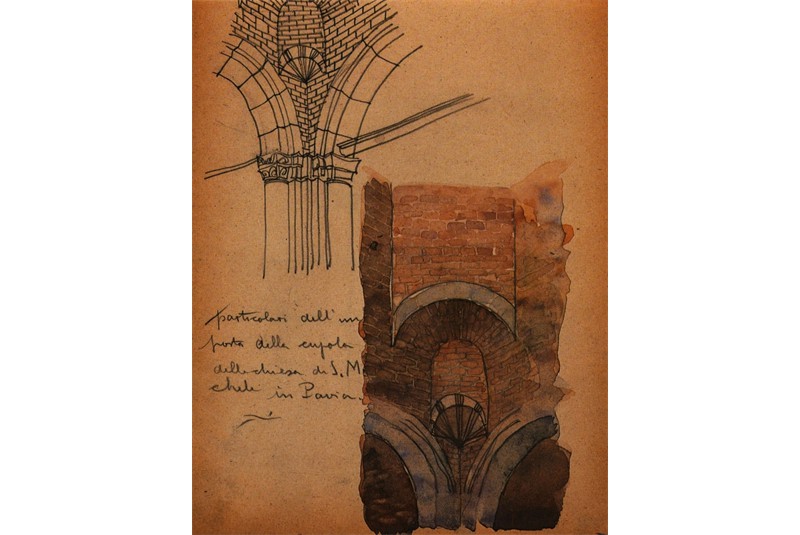 particolari dell'im
posta della cupola
della chiesa di S. Mi
chele in Pavia.